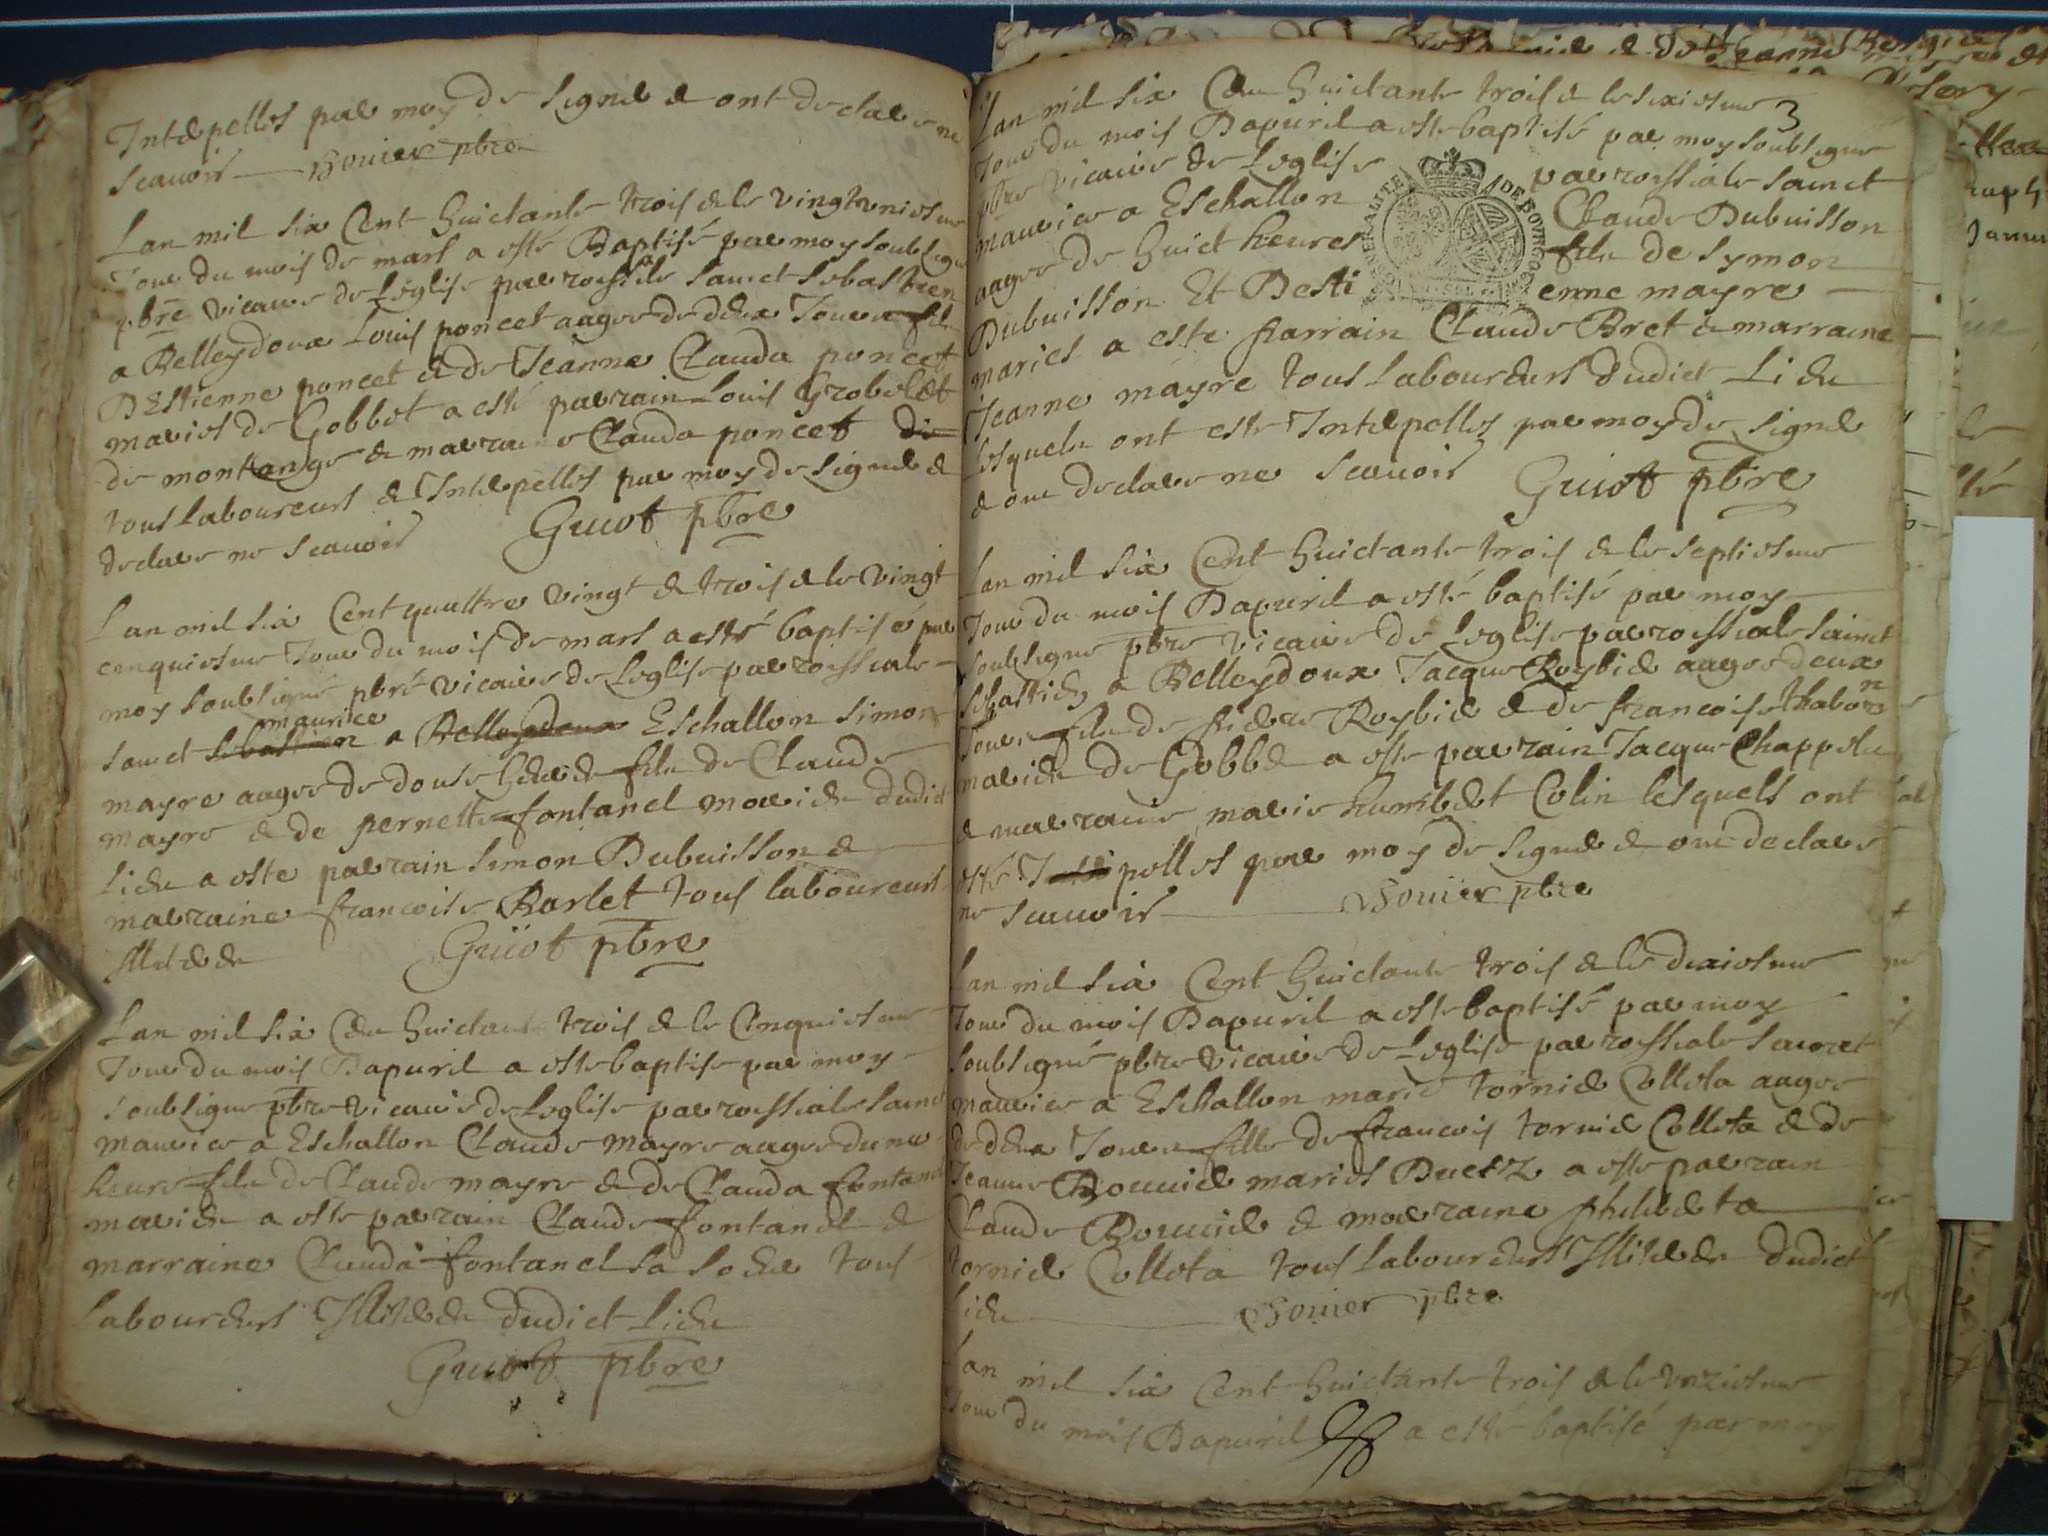 Interpelles par moy de signer & ont declare ne
scavoir Bonier pbre
Lan mil six Cent huictante trois & le vingtuniesme
Jour du mois de mars a esté Baptisé par moy soubsigné
pbre vicaire de Leglise parrossiale sainct sebastien
a Belleydoux Louis poncet aagee de deux Jours fils
DEstienne poncet & de Jeanne Clauda poncet
maries de Gobbet a esté parrain Louis Grobellet
de montange & marraine Clauda poncet
tous laboureurs & Interpelles par moy de signer &
declare ne scavoir Guiot pbre
Lan mil six Cent quattre vingt & trois & le vingt
cenquiesme Jour du mois de mars a esté baptisé par
moy soubsigné pbre vicaire de Leglise parrossiale
sainct sebastien maurice a Belleydoux Eschallon simon
mayre aagee de douse heures fils de Claude
mayre & de pernette fontanel maries dudict
Lieu a este parrain simon Dubuisson &
marraine francoise Barlet tous laboureurs
Illiteres Guiot pbre
Lan mil six Cens huictante trois & le Cenquiesme
Jour du mois Dapuril a este baptise par moy
soubsigne pbre vicaire de Leglise parrossiale sainct
maurice a Eschallon Claude mayre aagee dune
heure fils de Claude mayre & de Clauda fontanel
maries a este parrain Claude fontanel &
marraine Clauda fontanel sa soeur tous
Laboureurs Illiteres dudict Lieu
Guiot pbre
3
Lan mil six Cens huictante trois & le sixiesme
Jour du mois Dapuril a este baptisé par moy soubsigne
pbre vicaire de Leglise parrossiale sainct
maurice a Eschallon Claude Dubuisson
aagee de huict heures fils de symon
Dubuisson Et Desti enne mayre
maries a este parrain Claude Bret & marraine
Jeanne mayre tous Laboureurs dudict Lieu
Lesquels ont este Interpelles par moy de signer
& ont declare ne scavoir Guiot pbre
GENERALITE DE BOURGOGNE
Lan mil six Cent huictante trois & le septiesme
Jour du mois Dapuril a esté baptisé par moy
soubsigne pbre vicaire de Leglise parrossiale sainct
sebastien a Belleydoux Jacque Roybier aagee deux
Jours fils de pierre Roybier & de francoise thabonn
maries de Gobbet a este parrain Jacque Chappelu
& marraine marie humbert Colin lesquels ont
esté Interpelles par moy de signer & ont declare
ne scavoir Bonier pbre
Lan mil six Cent huictante trois & le dixiesme
Jour du mois Dapuril a este baptisé par moy
soubsigné pbre vicaire de Leglise parrossiale sainct
maurice a Eschallon marie tornier Colleta aagee
de deux Jours fille de francois tornier Colleta & de
Jeanne Bonnier maries a este parrain
Claude Bonnier & marraine philiberta
tornier Colleta tous Laboureurs Illiteres dudict
Lieu Bonier pbre
Lan mil six Cent huictante trois & le unziesme
Jour du mois Dapuril a esté baptisé par moy